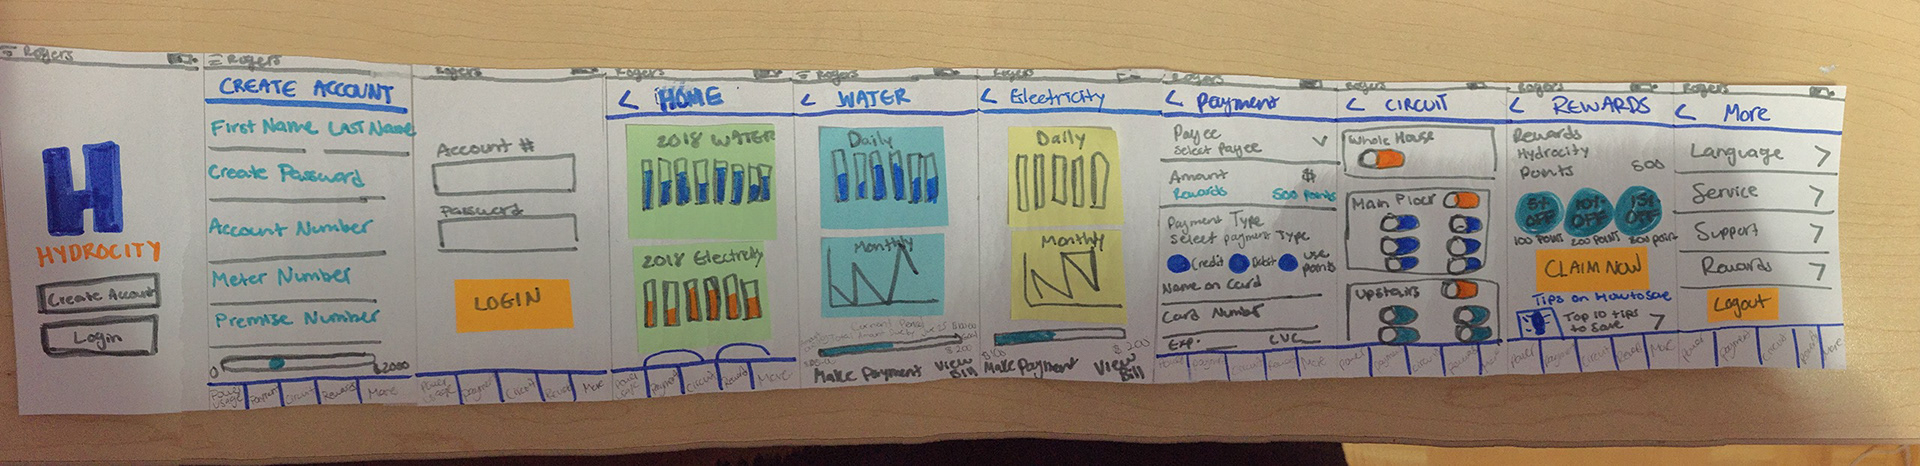 Rogers
H
HYDROCITY
Create Account
Login
Rogers
CREATE ACCOUNT
First Name Last Name
Create Password
Account Number
Meter Number
Premise Number
0 $2000
Power Usage Payment Circuit Rewards More
Rogers
Account #
Password
LOGIN
Power Usage Payment Circuit Rewards More
Rogers
< HOME
2018 WATER
2018 Electricity
Power Usage Payment Circuit Rewards More
Rogers
< WATER
Daily
Monthly
$200
Make Payment View Bill
Rogers
< Electricity
Daily
Monthly
$100 $200
Make Payment View Bill
Rogers
< Payment
Payee
Select payee
Amount $
Rewards 500 Points
Payment Type
Select payment Type
Credit Debit use points
Name on Card
Card Number
Exp. CVC
Rogers
< CIRCUIT
Whole House
Main Floor
Upstairs
Rogers
< REWARDS
Rewards
Hydrocity
Points 500
5% OFF 10% OFF 15% OFF
100 POINT 200 POINT 300 point
CLAIM NOW
Tips on How to save
Top 10 tips
to save >
Rogers
< More
Language >
Service >
Support >
Rewards >
Logout